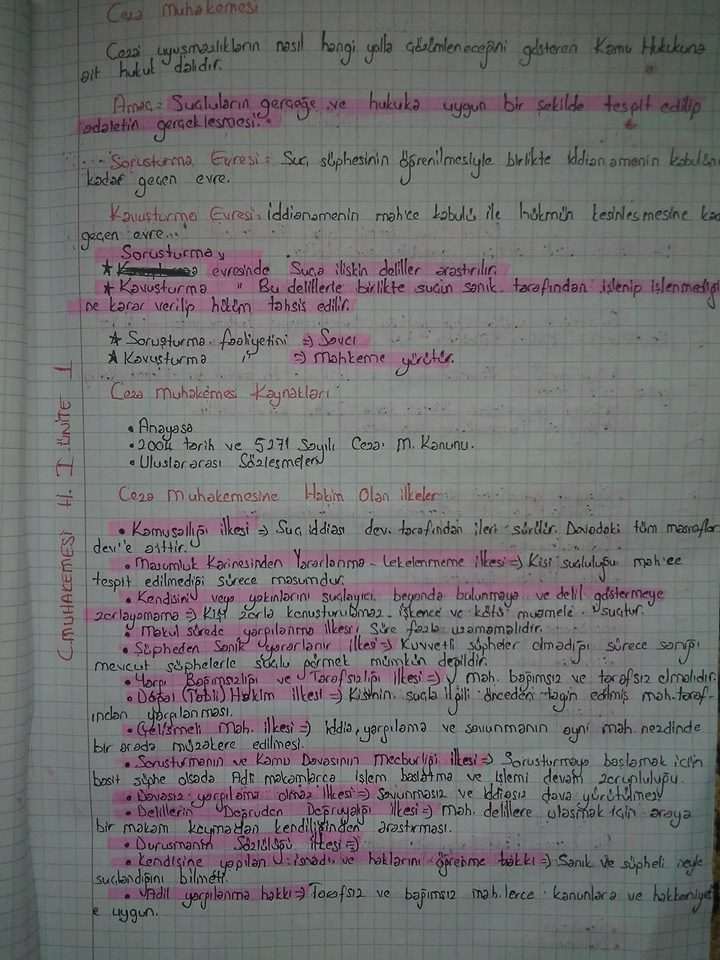 Ceza Muhakemesi
Cezai uyuşmazlıkların nasıl hangi yolla çözümleneceğini gösteren Kamu Hukukuna
ait hukuk dalıdır.
Amaç = Suçluların gerçeğe ve hukuka uygun bir şekilde tespit edilip
adaletin gerçekleşmesi.
Soruşturma Evresi = Suç şüphesinin öğrenilmesiyle birlikte iddianamenin kabulüne
kadar geçen evre.
Kovuşturma Evresi = İddianamenin mah'ce kabulü ile hükmün kesinleşmesine kad
geçen evre.
Soruşturma
★ evresinde Suça ilişkin deliller araştırılır.
★ Kovuşturma " Bu delillerle birlikte suçun sanık tarafından işlenip işlenmediği
ne karar verilip hüküm tahsis edilir.
★ Soruşturma faaliyetini => Savcı
★ Kovuşturma " => Mahkeme yürütür.
Ceza Muhakemesi Kaynakları:
• Anayasa
• 2004 tarih ve 5271 Sayılı Ceza M. Kanunu.
• Uluslararası Sözleşmeler
C.MUHAKEMESİ H. I ÜNİTE 1
Ceza Muhakemesine Hakim Olan İlkeler
• Kamusallığı ilkesi => Suç iddiası dev. tarafından ileri sürülür. Davadaki tüm masraflar
dev'e aittir.
• Masumluk Karinesinden Yararlanma - Lekelenmeme ilkesi => Kişi suçluluğu mah'ce
tespit edilmediği sürece masumdur.
• Kendisini veya yakınlarını suçlayıcı beyanda bulunmaya ve delil göstermeye
zorlayamama => Kişi zorla konuşturulmaz. İşkence ve kötü muamele suçtur.
• Makul sürede yargılanma ilkesi Süre fazla uzamamalıdır.
• Şüpheden Sanık yararlanır ilkesi => Kuvvetli şüpheler olmadığı sürece sanığı
mevcut şüphelerle suçlu görmek mümkün değildir.
• Yargı Bağımsızlığı ve Tarafsızlığı ilkesi => mah. bağımsız ve tarafsız olmalıdır.
• Doğal (Tabii) Hakim ilkesi => Kişinin suçla ilgili önceden tayin edilmiş mah. taraf-
ından yargılanması.
• Çelişmeli Mah. ilkesi => İddia, yargılama ve savunmanın aynı mah. nezdinde
bir arada müzakere edilmesi.
• Soruşturmanın ve Kamu Davasının Mecburiliği ilkesi => Soruşturmaya başlamak için
basit şüphe olsada Adli makamlarca işlem başlatma ve işlemi devam zorunluluğu.
• Davasız yargılama olmaz ilkesi => Savunmasız ve iddiasız dava yürütülmez
• Delillerin Doğruden Doğruyalığı ilkesi => Mah. delillere ulaşmak için araya
bir makam koymadan kendiliğinden araştırması.
• Duruşmanın Sözlülüğü ilkesi =>
• Kendisine yapılan isnadı ve haklarını öğrenme hakkı => Sanık ve şüpheli neyle
suçlandığını bilmeli.
• Adil yargılanma hakkı => Tarafsız ve bağımsız mah.lerce kanunlara ve hakkaniyet
e uygun.